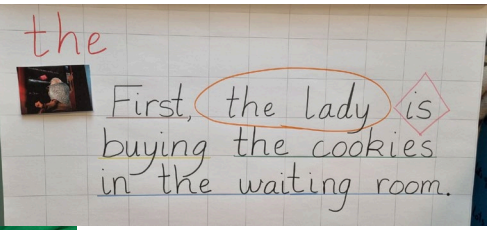 the
First, the lady is
buying the cookies
in the waiting room.